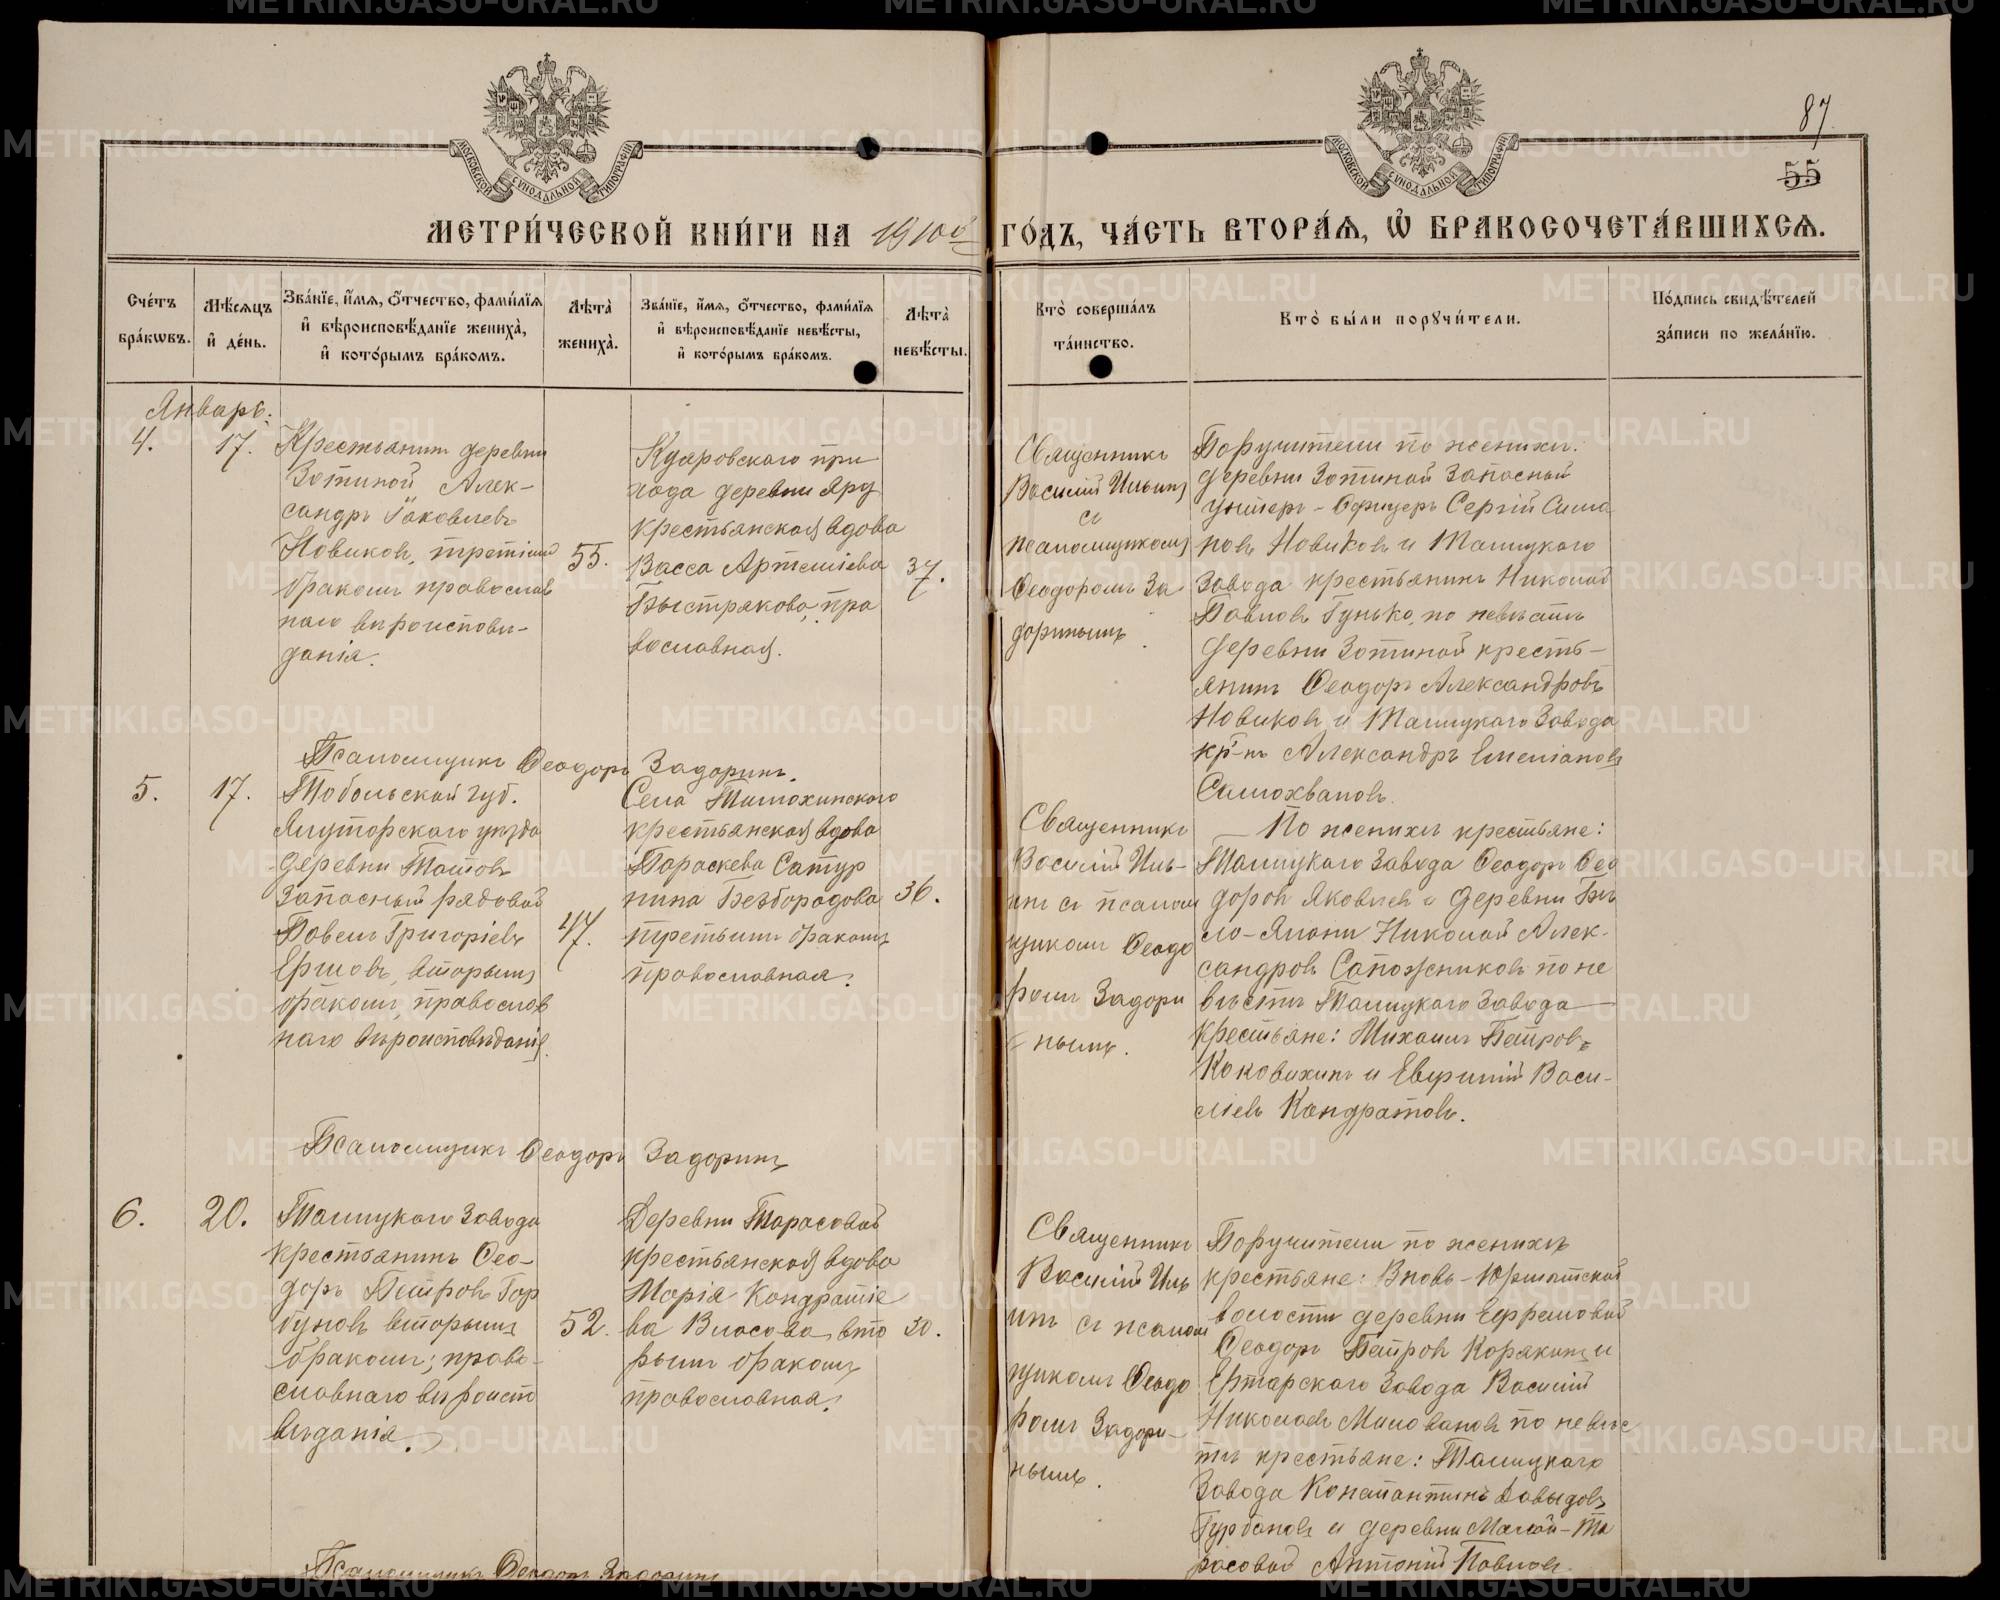 87
55
МОСКОВСКОЙ СѴНОДАЛЬНОЙ ТИПОГРАФІИ
МОСКОВСКОЙ СѴНОДАЛЬНОЙ ТИПОГРАФІИ
МЕТРИ́ЧЕСКОЙ КНИ́ГИ НА 1910й ГО́ДЪ, ЧА́СТЬ ВТОРА́Ѧ, Ѽ БРАКОСОЧЕТА́ВШИХСѦ.
Сче́тъ бра́кѡвъ.
Мѣ́сѧцъ и҆ де́нь.
Зва́нїе, и҆́мѧ, ѻ҆́тчество, фами́лїѧ и҆ вѣроисповѣ́данїе жениха̀, и҆ кото́рымъ бра́комъ.
Лѣ́та̀ жениха̀.
Зва́нїе, и҆́мѧ, ѻ҆́тчество, фами́лїѧ и҆ вѣроисповѣ́данїе невѣ́сты, и҆ кото́рымъ бра́комъ.
Лѣ́та̀ невѣ́сты.
Кто̀ соверша́лъ та́инство.
Кто̀ бы́ли порꙋчи́тели.
По́дпись свидѣ́телей за́писи по жела́нїю.
Январь.
4.
17.
Крестьянин деревни
Зотиной Алек-
сандръ Іаковлевъ
Новиковъ, третьимъ
бракомъ православ
наго вѣроисповѣ-
данія.
55.
Куяровскаго при
хода деревни Яръ
крестьянская вдова
Васса Артеміева
Быстрякова, пра
вославная.
37.
Священникъ
Василій Ильинъ
съ
псаломщикомъ
Ѳеодоромъ За
доринымъ.
Поручители по женихѣ:
деревни Зотиной Запасный
унтеръ-Офицеръ Сергій Сима
новъ Новиковъ и Талицкаго
Завода крестьянинъ Николай
Павловъ Гунько, по невѣстѣ
деревни Зотиной кресть-
янинъ Ѳеодоръ Александровъ
Новиковъ и Талицкаго Завода
кр-нъ Александръ Емеліановъ
Самохваловъ.
Псаломщикъ Ѳеодоръ Задоринъ.
5.
17.
Тобольской губ.
Ялуторскаго уѣзда
деревни
Запасный рядовой
Павелъ Григоріевъ
Ершовъ, вторымъ
бракомъ, православ
наго вѣроисповѣданія.
47.
Села
крестьянская вдова
Параскева Сатур
нина Безбородова
третьимъ бракомъ
православная.
36.
Священникъ
Василій Иль-
инъ съ псалом
щикомъ Ѳеодо
ромъ Задори
нымъ.
По женихѣ крестьяне:
Талицкаго Завода Ѳеодоръ Ѳео
доровъ Яковлевъ и деревни Бѣ
ло-Елани Николай Алек-
сандровъ Сапожниковъ по не
вѣстѣ Талицкаго Завода
крестьяне: Михаилъ Петровъ
Коковихинъ и Евфимій Васи-
ліевъ Кондратовъ.
Псаломщикъ Ѳеодоръ Задоринъ
6.
20.
Талицкаго Завода
крестьянинъ Ѳео-
доръ Петровъ Гор
буновъ вторымъ
бракомъ, право-
славнаго вѣроиспо
вѣданія.
52.
Деревни Тарасовой
крестьянская вдова
Марія Кондратіе
ва Власова, вто
рымъ бракомъ
православная.
30.
Священникъ
Василій Иль
инъ съ псалом
щикомъ Ѳеодо
ромъ Задори-
нымъ.
Поручители по женихѣ
крестьяне: Вновь-Юрмытской
волости деревни Ефремовой
Ѳеодоръ Петровъ Корякинъ и
Ертарскаго Завода Василій
Николаевъ Миловановъ по невѣс
тѣ крестьяне: Талицкаго
Завода Константинъ Давыдовъ
Гурбановъ и деревни Малой-Та
расовой Антоній Павловъ.
Псаломщикъ Ѳеодоръ Задоринъ
METRIKI.GASO-URAL.RU